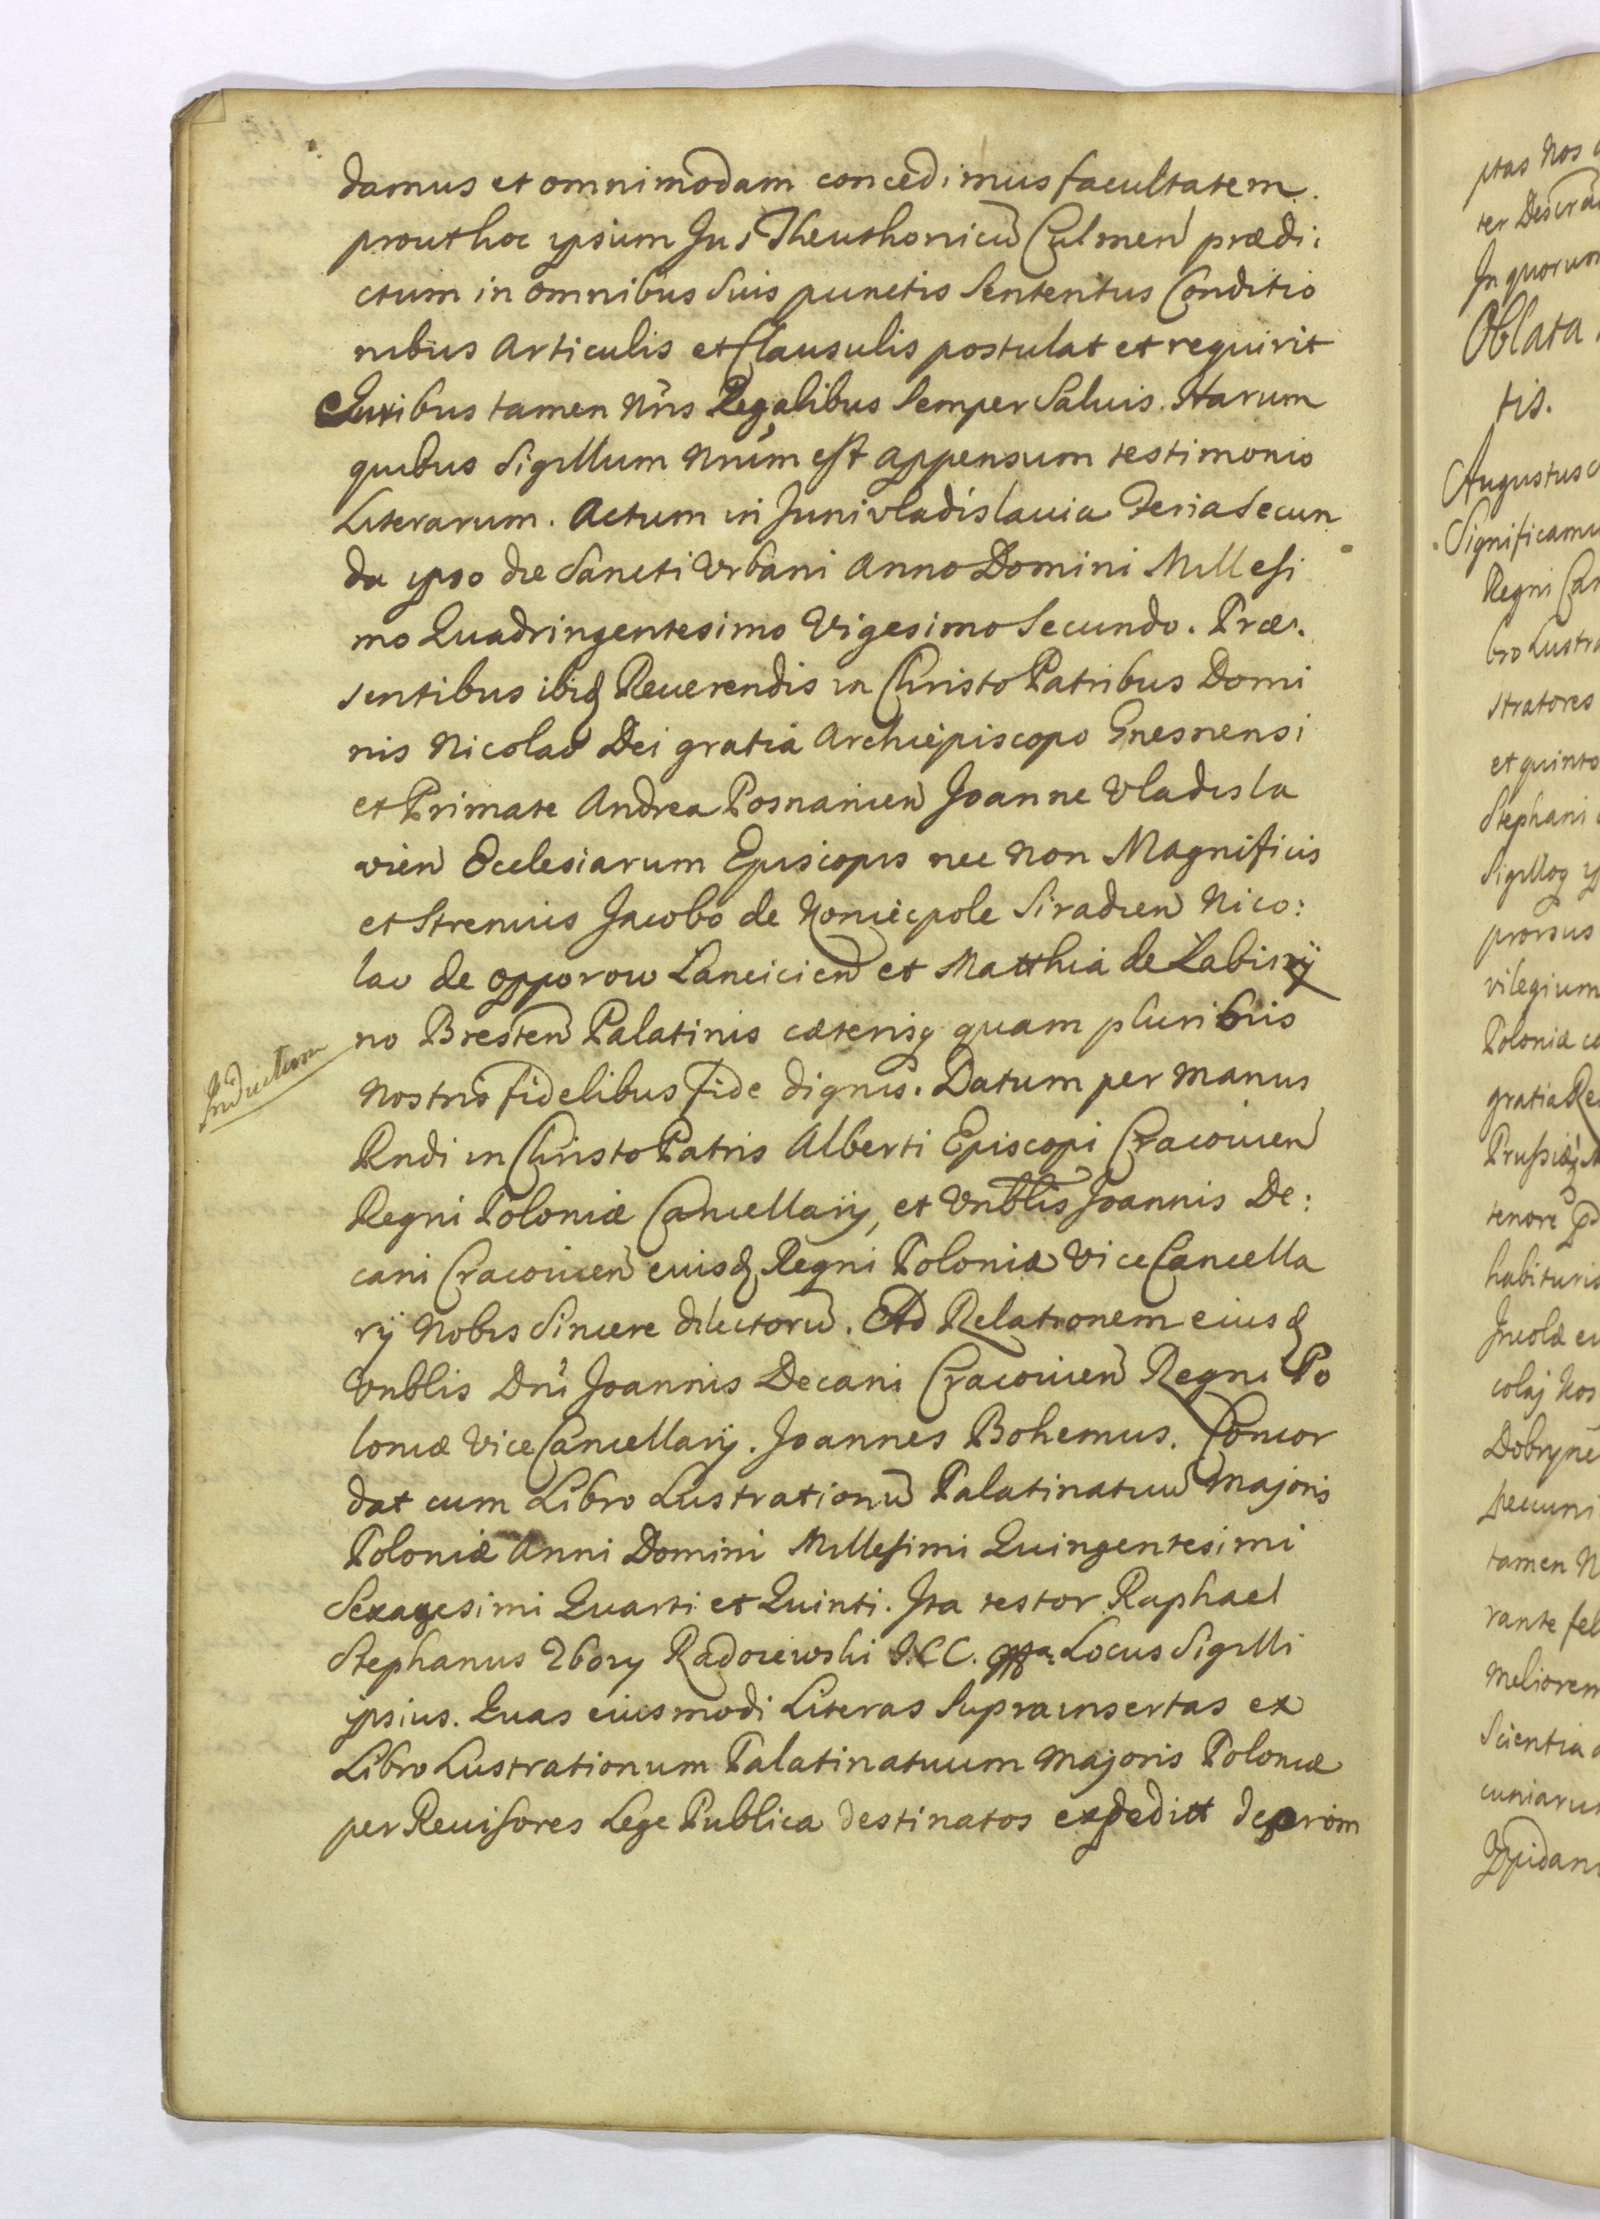 damus et omnimodam concedimus facultatem.
prout hoc ipsum Jus Theuthonicũ Culmen̄ prædi:
ctum in omnibus Suis punctis Sententiis Conditio
nibus Articulis et Clausulis postulat et requirit
Juribus tamen Nr̃is Regalibus Semper Saluis. Harum
quibus Sigillum Nrũm est appensum testimonio
Literarum. Actum in Junivladislauia Feria Secun
da ipso die Sancti Urbani Anno Domini Millesi
mo Quadringentesimo Vigesimo Secundo. Præ.
sentibus ibiđ Reuerendis in Christo Patribus Domi
nis Nicolao Dei gratia Archiepiscopo Gnesnensi
et Primate Andrea Posnanien̄ Joanne Vladisla
vien̄ Ecclesiarum Episcopis nec non Magnificis
et Strenuis Jacobo de Koniecpole Siradien̄ Nico:
lao de Opporow Lancicien̄ et Matthia de Labisẏ
no Bresten̄ Palatinis cæterisq quam pluribus
Induction
Nostris fidelibus fide dignis. Datum per manus
Rndi in Christo Patris Alberti Episcopi Cracouien̄
Regni Poloniæ Cancellarij, et Vnblis Joannis De:
cani Cracouien̄ eiusđ Regni Poloniæ Vice Cancella
rij Nobis Sincere dilectorũ. Ad Relationem eiusđ
Vnblis Dni Joannis Decani Cracouien̄ Regni Po
loniæ Vice Cancellarij. Joannes Bohemus. Concor
dat cum Libro Lustrationũ Palatinatuũ Majoris
Poloniæ Anni Domini Millesimi Quingentesimi
Sexagesimi Quarti et Quinti. Ita testor Raphael
Stephanus Zbory Radoiewski J.CC. Locus Sigilli
ipsius. Quas eiusmodi Literas Suprainsertas ex
Libro Lustrationum Palatinatuum Majoris Poloniæ
per Reuisores Lege Publica destinatos expedit deprom
ptas Nos
ter
In quorum
Oblata
tis.
Augustus
Significamu
Regni
bro Lustra
stratores
et quinto
Stephani
prorsus
vilegium
Poloniæ
gratia Re
tenore
habituris
Incolæ
colaj Nos
tamen N
rante fel
meliorem
Scientia
cuniarum